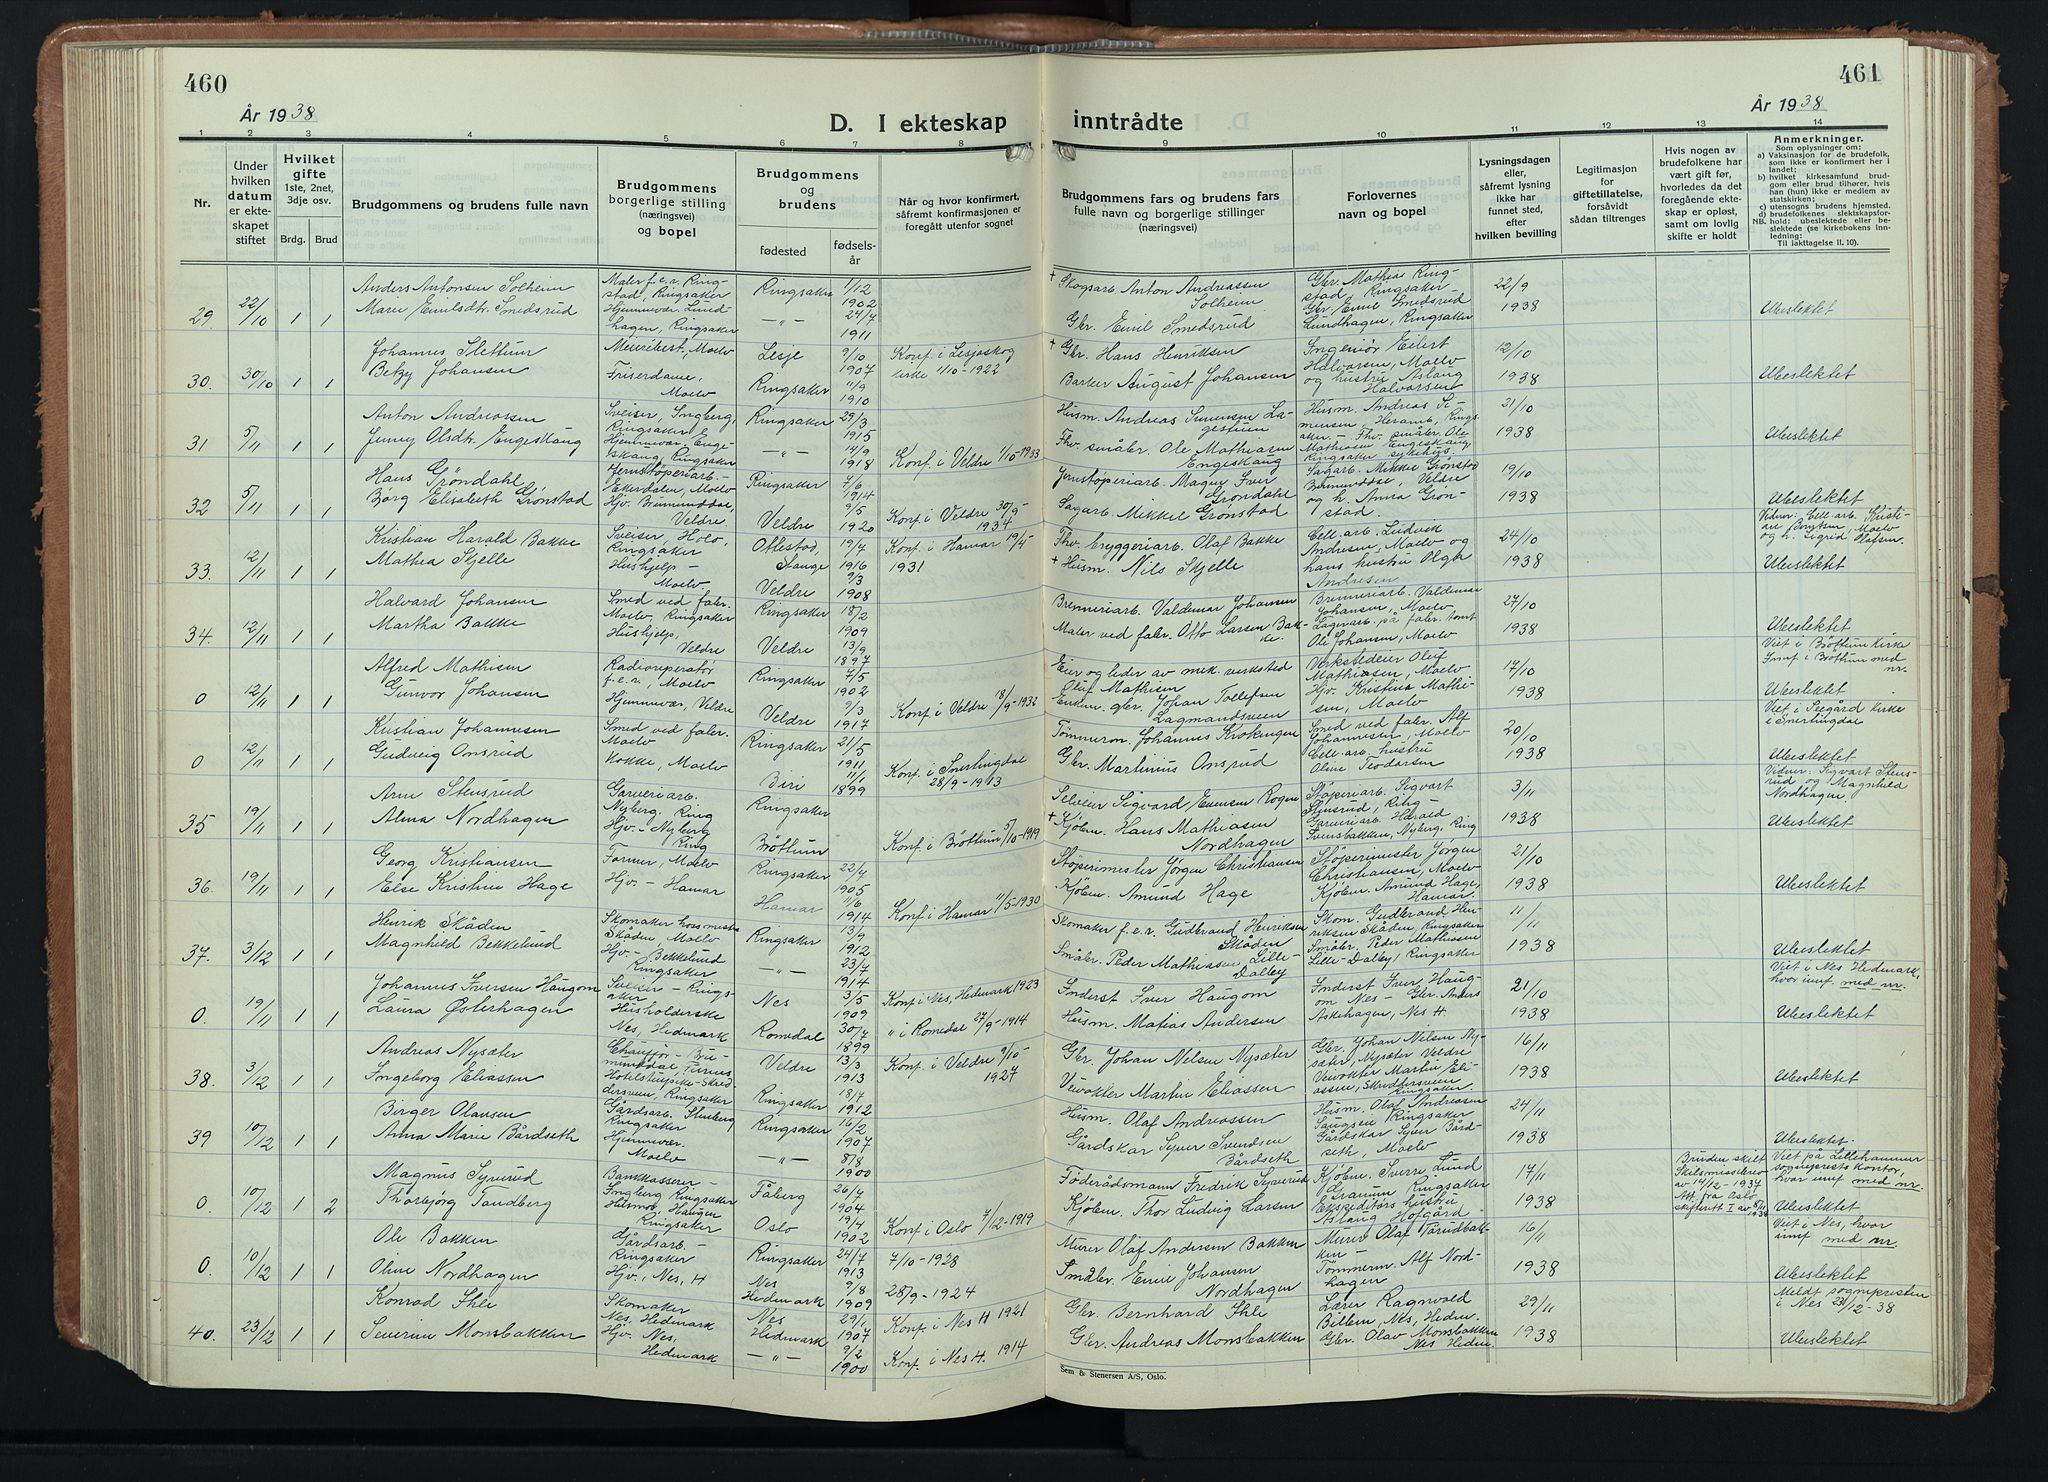 460
År 1938
D. I ekteskap
1
2
3
4
5
6
7
8
Nr.
Under hvilken datum er ekteskapet stiftet
Hvilket gifte
1ste, 2net, 3dje osv.
Brdg.
Brud
Brudgommens og brudens fulle navn
Brudgommens borgerlige stilling (næringsvei) og bopel
Brudgommens og brudens
fødested
fødselsår
Når og hvor konfirmert, såfremt konfirmasjonen er foregått utenfor sognet
29
22/10
1
1
Anders Antonsen Solheim
Marie Emilsdtr. Smedsrud
Maler f.e.r. Ringstad, Ringsaker
Hjemmevær. Lundhagen, Ringsaker
Ringsaker
—"—
1/12 1902
24/7 1911
30.
30/10
1
1
Johannes Slettum
Betzy Johansen
Meieribest., Moelv
Friserdame, Moelv
Lesje
Ringsaker
9/10 1907
11/9 1910
Konf. i Lesjaskog kirke 1/10-1922
31
5/11
1
1
Anton Andreassen
Jenny Olsdtr. Engeskaug
Sveiser, Ingberg, Ringsaker
Hjemmevær. Engeskaug, Ringsaker
Ringsaker
—"—
29/3 1915
14/9 1918
Konf. i Veldre 1/10-1933
32
5/11
1
1
Hans Grøndahl
Borg Elisabeth Grønstad
Jernstøperiarb. - Ekerdalen, Moelv
Hjv. Brumunddal, Veldre
Ringsaker
Veldre
7/6 1914
9/5 1920
Konf. i Veldre 30/9-1934
33.
12/11
1
1
Kristian Harald Bakke
Mathea Skjelle
Sveiser, Holo, Ringsaker
Hushjelp - Moelv
Ottestad, Stange
Veldre
19/4 1916
9/3 1908
Konf. i Hamar 19/5 1931
34.
12/11
1
1
Halvard Johansen
Martha Bakke
Smed ved fabr. Moelv, Ringsaker
Hushjelp, Veldre
Ringsaker
Veldre
18/2 1909
13/9 1897
0
12/11
1
1
Alfred Mathisen
Gunvor Johansen
Radioreperatør f.e.r., Moelv
Hjemmevær, Veldre
Ringsaker
Veldre
7/5 1902
9/3 1917
Konf. i Veldre 18/9-1932
0
12/11
1
1
Kristian Johannesen
Gudveig Onsrud
Smed ved fabr. Moelv
Kokke, Moelv
Ringsaker
Biri
21/5 1911
11/1 1899
Konf. i Snertingdal 28/9-1913
35
19/11
1
1
Arne Stensrud
Alma Nordhagen
Garveriarb. Nyberg, Ring
Hjv. - Nyberg Ring
Ringsaker
Brøttum
Konf. i Brøttum 5/10-1919
36.
19/11
1
1
Georg Kristiansen
Else Kristine Hage
Former, Moelv
Hjv. - Hamar
Ringsaker
Hamar
22/4 1905
11/6 1914
Konf. i Hamar 11/5-1930
37.
3/12
1
1
Henrik Skåden
Magnhild Bekkelund
Skomaker hos mester Skåden, Moelv
Hjv. - Bekkelund Ringsaker
Ringsaker
—"—
13/9 1912
23/7 1914
0.
19/11
1
1
Johannes Iversen Haugom
Laura Østerhagen
Sveiser - Ringsaker
Husholderske Nes, Hedmark
Nes
Romedal
3/5 1909
30/7 1899
Konf. i Nes, Hedmark 1923
" i Romedal 27/9-1914
38.
3/12
1
1
Andreas Nysæter
Ingeborg Eliassen
Chauffør - Brumunddal, Furnes
Hotellstuepike - Skreddersveen, Ringsaker
Veldre
Ringsaker
13/3 1913
18/7 1912
Konf. i Veldre 9/10-1927
39
10/12
1
1
Birger Olausen
Anna Marie Bårdseth
Gårdsarb. Stenberg Ringsaker
Hjemmevær. Moelv
Ringsaker
—"—
16/2 1907
8/8 1900
0.
10/12
1
2
Magnus Syverud
Thorbjørg Tandberg
Bankkasserer - Ingberg Ringsaker
Husmor, Haugen Ringsaker
Fåberg
Oslo
26/4 1904
19/4 1902
Konf. i Oslo 7/12-1919
0.
10/12
1
1
Ole Bakken
Oline Nordhagen
Gårdsarb - Ringsaker
Hjv., Nes, H
Ringsaker
Nes Hedmark
24/7 1913
9/8 1909
7/10-1928
28/9-1924
40.
23/12
1
1
Konrad Ihle
Severine Monsbakken
Skomaker Nes, Hedmark
Hjv. Nes, Hedmark
Nes Hedmark
—"—
29/1 1907
9/2 1900
Konf. i Nes H 1921
Konf. i Nes H. 1914
461
År 1938
inntrådte
9
10
11
12
13
14
Brudgommens fars og brudens fars fulle navn og borgerlige stillinger (næringsvei)
Forlovernes navn og bopel
Lysningsdagen eller, såfremt lysning ikke har funnet sted, efter hvilken bevilling
Legitimasjon for giftetillatelse, forsåvidt sådan tiltrenges
Hvis nogen av brudefolkene har vært gift før, hvorledes da det foregående ekteskap er opløst, samt om lovlig skifte er holdt
Anmerkninger.
Som oplysninger om:
a) Vaksinasjon for de brudefolk, som ikke er konfirmert her i landet;
b) hvilket kirkesamfund brudgom eller brud tilhører, hvis han (hun) ikke er medlem av statskirken;
c) utensogns brudens hjemsted.
d) brudefolkenes slektskapsforhold: ubeslektede eller beslektede (se kirkebokens innledning:
NB. Til Iakttagelse II. 10).
† Skogsarb. Anton Andreassen Solheim
Gbr. Emil Smedsrud
Gbr. Mathias Ringstad, Ringsaker
Gbr. Emil Smedsrud Lundhagen, Ringsaker
22/9 1938
Ubeslektet
† Gbr. Hans Henriksen
Barker August Johansen
Ingeniør Eilert Halvorsen, Moelv og hustru Aslaug Halvorsen
12/10 1938
Ubeslektet
Husm. Andreas Simensen
Fhv. småbr. Ole Mathiasen Engeskaug
Husm. Andreas Simensen, Heramb, Ringsaker - Fhv. småbr. Ole Mathiasen Engeskaug Ringsaker sykehus.
21/10 1938
Ubeslektet
Jernstøperiarb. Magnus Iver Grøndahl
Sagarb. Mikkel Grønstad
Sagarb. Mikkel Grønstad Brumunddal, Veldre og h. Anna Grønstad.
19/10 1938
Ubeslektet
Fhv. bryggeriarb. Olaf Bakke
† Husm. Nils Skjelle
Cell. arb. Ludvik Andresen, Moelv og hans hustru Olga Andresen
24/10 1938
Vidner: Cell. arb. Kristian Bentsen, Moelv og h. Sigrid Olafsen.
Ubeslektet
Brenneriarb. Valdemar Johansen
Maler ved fabr. Otto Larsen Bakke.
Brenneriarb. Valdemar Johansen, Moelv
Lagerarb. på fabr. tomt Ole Johansen, Moelv
27/10 1938
Ubeslektet
Eier og leder av mek. verksted Oluf Mathisen
Enkem. gbr. Johan Tollefsen Lagmandsveen
Verkstedeier Oluf Mathiasen, Moelv
Hjv. Kristine Mathisen, Moelv
17/10 1938
Viet i Brøttum kirke
Innf. i Brøttum med nr.
Ubeslektet
Tømmerm. Johannes Krokengen
Gbr. Martinius Onsrud
Smed ved fabr. Alf Johannesen, Moelv
Cell. arb. hustru Oline Teodorsen
20/10 1938
Viet i Seegård kirke i Snertingdal
Ubeslektet
Selveier Sigvard Evensen Rogne
† Kjøbm. Hans Mathiasen Nordhagen
Støperiarb. Sigvart Stensrud, Ring -
Garveriarb. Harald Svensbakken, Nyberg, Ring
3/11 1938
Vidner: Sigvart Stensrud og Magnhild Nordhagen.
Ubeslektet
Støperimester Jørgen Christiansen
Kjøbm. Amund Hage
Støperimester Jørgen Christiansen, Moelv
Kjøbm. Amund Hage, Hamar.
21/10 1938
Ubeslektet
Skomaker f.e.r. Gudbrand Henriksen Skåden
Småbr. Peder Mathiasen Lille-Dalby
Skom. Gudbrand Henriksen Skåden, Ringsaker
Småbr. Peder Mathiasen Lille-Dalby, Ringsaker
11/11 1938
Ubeslektet
Inderst Iver Haugom
Husm. Matias Andersen
Inderst Iver Haugom Nes - Gbr. Anders Askehagen, Nes H.
21/10 1938
Viet i Nes Hedmark, hvor innf. med nr.
Ubeslektet
Gbr. Johan Nelsen Nysæter
Veivokter Martin Eliassen
Gbr. Johan Nelsen Nysæter, Nysæter Veldre
Veivokter Martin Eliassen, Skreddersveen Ringsaker.
16/11 1938
Ubeslektet
Husm. Olaf Andreassen
Gårdskar Syver Svendsen Bårdseth
Husm. Olaf Andreasen Saugsen Ringsaker
Gårdskar Syver Bårdseth, Moelv
24/11 1938
Ubeslektet.
Føderådsmann Fredrik Syverud
Kjøbm. Thor Ludvig Larsen
Kjøbm. Sverre Lund Graum Ringsaker
Ekspeditørs hustru Aslaug Hofgård -
17/11 1938
Bruden skilt
Skilsmissebrev av 14/12-1937
Att. fra Oslo skifterett I av 5/11 1938
Viet på Lillehammer sogneprests kontor, hvor innf. med nr.
Ubeslektet
Murer Olaf Andersen Bakken
Småbr. Emil Johansen Nordhagen
Murer Olaf Torudbakken -
Tømmerm. Alf Nordhagen
16/11 1938
Viet i Nes, hvor innf. med nr.
Ubeslektet
Gbr. Bernhard Ihle
Gbr. Andreas Monsbakken
Lærer Ragnvald Billem, Nes, Hedm.
Gbr. Olav Monsbakken Nes Hedm.
29/11 1938
Meldt sognepresten i Nes 23/12-38
Ubeslektet
Sem & Stenersen A/S, Oslo.